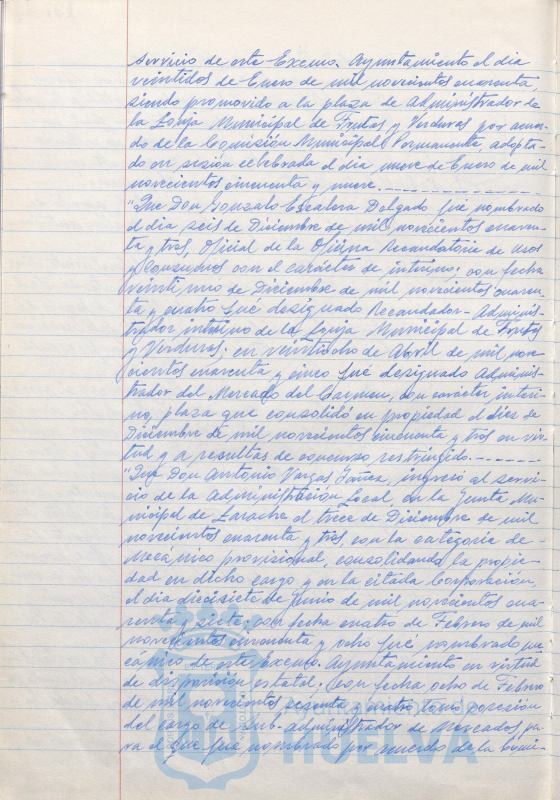 servicio de este Excmo. Ayuntamiento el dia
veintidos de Enero de mil novecientos cuarenta,
siendo promovido a la plaza de Administrador de
la Lonja Municipal de Frutas y Verduras por acuer-
do de la Comisión Municipal Permanente, adopta-
do en sesión celebrada el dia nueve de Enero de mil
novecientos cincuenta y nueve.
"Que Don Gonzalo Escalera Delgado fué nombrado
el dia seis de Diciembre de mil novecientos cuaren-
ta y tres, Oficial de la Oficina Recaudatoria de Usos
y Consumos con el carácter de interino; con fecha
veintiuno de Diciembre de mil novecientos cuaren-
ta y cuatro fué designado Recaudador-Adminis-
trador interino de la Lonja Municipal de Frutas
y Verduras; en veintiocho de Abril de mil nove-
cientos cuarenta y cinco fué designado Adminis-
trador del Mercado del Carmen, con carácter interi-
no, plaza que consolidó en propiedad el diez de
Diciembre de mil novecientos cincuenta y tres en vir-
tud y a resultas de concurso restringido.
"Que Don Antonio Vargas Yañez, ingresó al servi-
cio de la Administración Local en la Junta Mu-
nicipal de Larache el trece de Diciembre de mil
novecientos cuarenta y tres, con la categoria de
Mecánico provisional, consolidando la propie-
dad en dicho cargo y en la citada Corporación,
el dia diecisiete de Junio de mil novecientos cua-
renta y siete; con fecha cuatro de Febrero de mil
novecientos cincuenta y ocho fué nombrado me-
cánico de este Excmo. Ayuntamiento en virtud
de disposición estatal; con fecha ocho de Febrero
de mil novecientos sesenta y cuatro tomó posesión
del cargo de Sub-administrador de Mercados pa-
ra el que fué nombrado por acuerdo de la Comi-
HUELVA